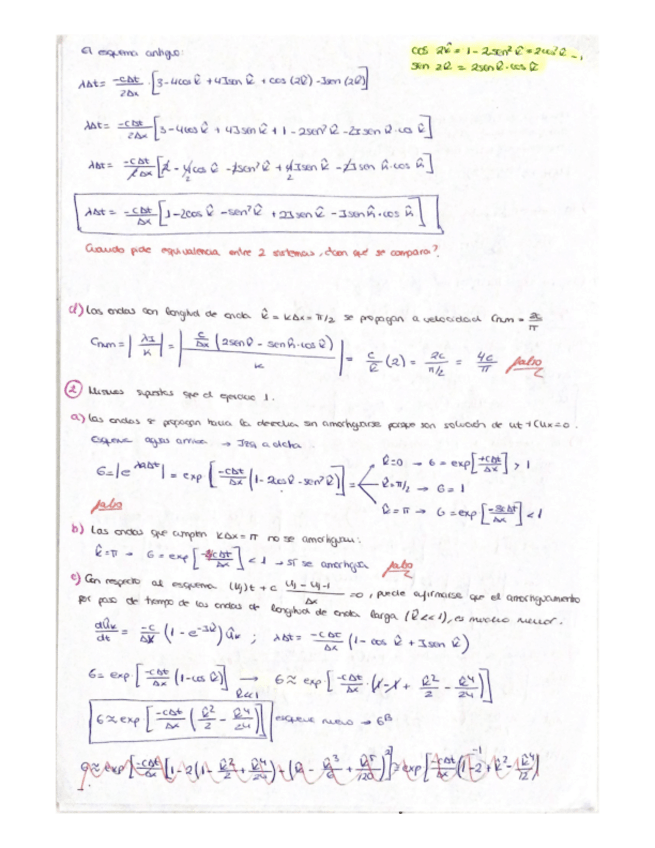 El esquema antiguo:
cos 2k̂ = 1 - 2sen² k̂ = 2cos² k̂ - 1
sen 2k̂ = 2sen k̂·cos k̂
λΔt = -cΔt/2Δx · [3 - 4cos k̂ + 4Isen k̂ + cos (2k̂) - Isen (2k̂)]
λΔt = -cΔt/2Δx [3 - 4cos k̂ + 4Isen k̂ + 1 - 2sen² k̂ - 2Isen k̂·cos k̂]
λΔt = -cΔt/2Δx [4 - 4cos k̂ - 2sen² k̂ + 4Isen k̂ - 2Isen k̂·cos k̂]
λΔt = -cΔt/Δx [1 - 2cos k̂ - sen² k̂ + 2Isen k̂ - Isen k̂·cos k̂]
Cuando pide equivalencia entre 2 sistemas, ¿con qué se compara?
d) Las ondas con longitud de onda k̂ = kΔx = π/2 se propagan a velocidad Cnum = 2c/π
Cnum = |λI/k| = |c/Δx (2sen k̂ - sen k̂·cos k̂)/k| = c/k̂ (2) = 2c/π/2 = 4c/π falso
2 Mismos supuestos que el ejercicio 1.
a) Las ondas se propagan hacia la derecha sin amortiguarse porque son solución de ut + Cux = 0.
Esquema aguas arriba → Izq a dcha
G = |e^λRΔt| = exp [-cΔt/Δx (1 - 2cos k̂ - sen² k̂)] =
k̂=0 → G = exp [+cΔt/Δx] > 1
k̂=π/2 → G = 1
k̂=π → G = exp [-3cΔt/Δx] < 1
falso
b) Las ondas que cumplen kΔx = π no se amortiguan:
k̂=π → G = exp [-3cΔt/Δx] < 1 → sí se amortigua falso
c) Con respecto al esquema (Uj)t + c Uj - Uj-1/Δx = 0, puede afirmarse que el amortiguamiento
por paso de tiempo de las ondas de longitud de onda larga (k̂<<1), es mucho menor.
dûk/dt = -c/Δx (1 - e^-Ik̂) ûk ; λΔt = -cΔt/Δx (1 - cos k̂ + Isen k̂)
G = exp [-cΔt/Δx (1 - cos k̂)] → k̂<<1 G ≈ exp [-cΔt/Δx · (1 - 1 + k̂²/2 - k̂⁴/24)]
G ≈ exp [-cΔt/Δx (k̂²/2 - k̂⁴/24)] esquema nuevo → G^B
G ≈ exp [-cΔt/Δx [1 - 2(1 - k̂²/2 + k̂⁴/24) - (k̂ - k̂³/6 + k̂⁵/120)²] ≈ exp [-cΔt/Δx (1 - 2 + k̂² - k̂⁴/12)